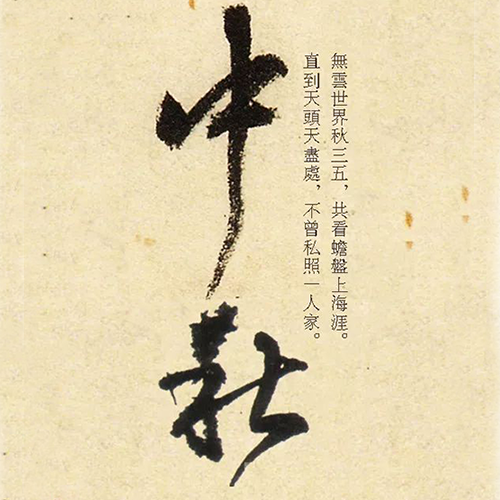 中秋
無雲世界秋三五，共看蟾盤上海涯。
直到天頭天盡處，不曾私照一人家。